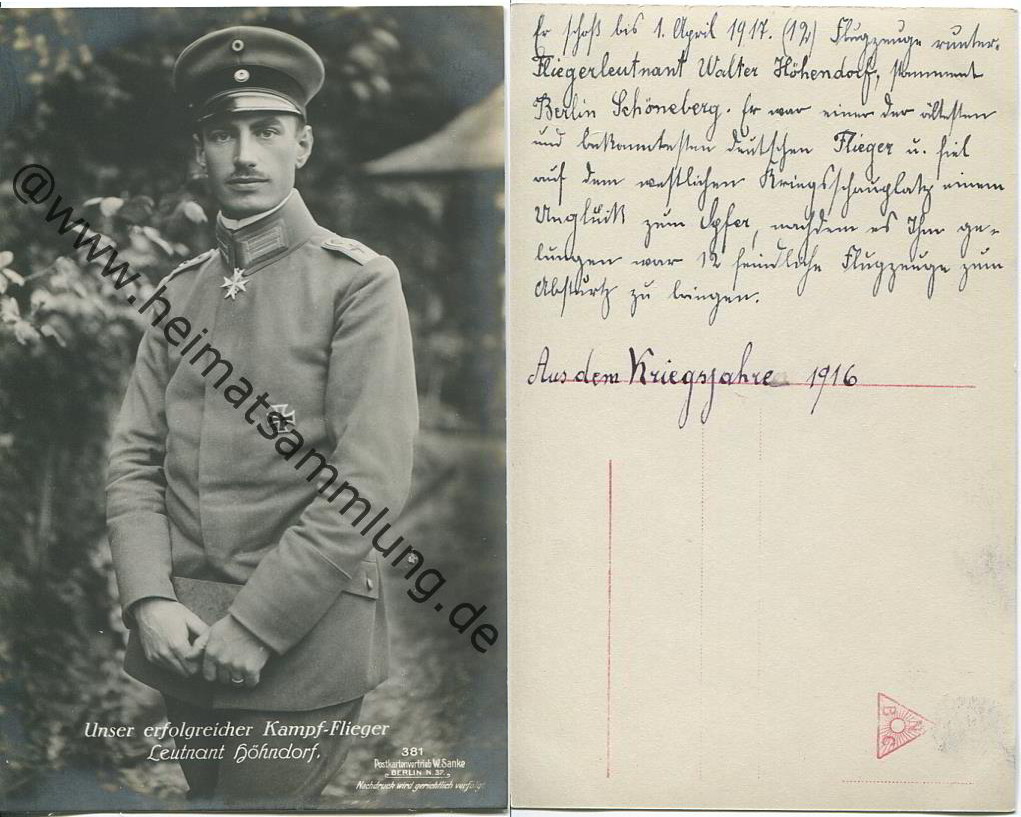 Unser erfolgreicher Kampf-Flieger
Leutnant Höhndorf.
381
Postkartenvertrieb W. Sanke
BERLIN N. 37.
Nachdruck wird gerichtlich verfolgt
@www.heimatsammlung.de
Er schoß bis 1. April 1917. (12) Flugzeuge runter.
Fliegerleutnant Walter Höhendorf, stammend
Berlin Schöneberg. Er war einer der ältesten
und bekanntesten deutschen Flieger u. fiel
auf dem westlichen Kriegsschauplatz einem
Unglück zum Opfer, nachdem es Ihm ge-
lungen war 12 feindliche Flugzeuge zum
Absturtz zu bringen.
Aus dem Kriegsjahre 1916